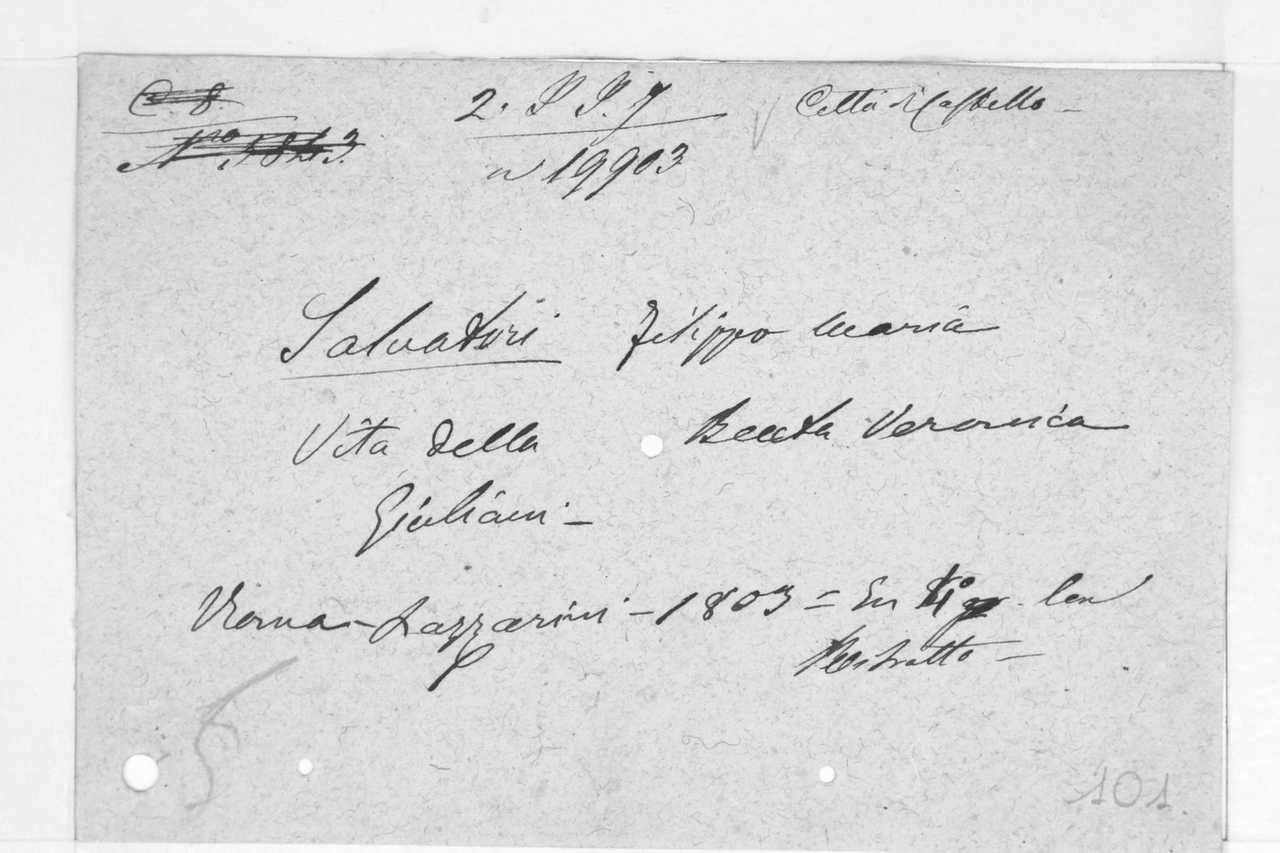 C. 8.
2. P P. 7
Città di Castello -
No 3843
n 19903
Salvatori Filippo Maria
Vita della Beata Veronica
Giuliani -
Roma - Lazzarini - 1803 = In 4° gr. Con
Ritratto -
5
101